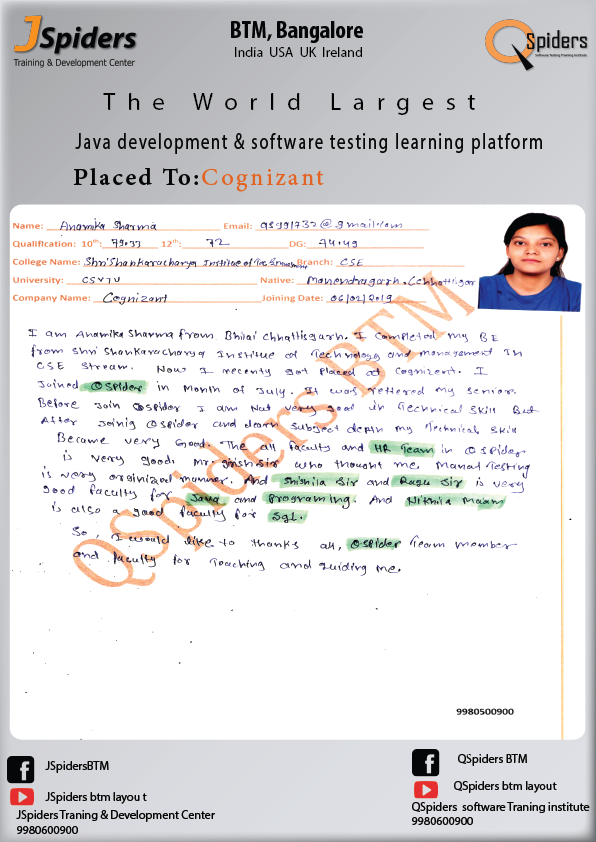 JSpiders
Training & Development Center
BTM, Bangalore
India USA UK Ireland
QSpiders
Software Testing Training Institute
The World Largest
Java development & software testing learning platform
Placed To:Cognizant
Name: Anamika Sharma Email: @gmail.com
Qualification: 10th: 79.33 12th: 72 DG: 74.49
College Name: Shri Shankaracharya Institute of Branch: CSE
University: CSVTU Native: Manendragarh, Chhattisgar
Company Name: Cognizant Joining Date: 06/02/2019
I am Anamika Sharma from Bhilai Chhattisgarh. I completed my BE
from Shri Shankaracharya Institue of Technology and management In
CSE Stream. Now I recently got placed at Cognizent. I
Joined QSpider in Month of July. It was reffered my senior.
Before Join QSpider I am Not very good in Technical Skill But
After Joinig QSpider and learn Subject depth my Technical Skill
Become very Good. The all faculty and HR Team in QSpider
is very good. Mr. Girish Sir who thought me Manual Testing
is very orginized manner. And Shishila Sir and Ragu Sir is very
good faculty for Java and Programing. And Nikhila Maam
is also a good faculty for Sql.
So, I would like to thanks all, QSpider Team member
and faculty for Teaching and guiding me.
QSpiders BTM
9980500900
JSpidersBTM
JSpiders btm layou t
JSpiders Traning & Development Center
9980600900
QSpiders BTM
QSpiders btm layout
QSpiders software Traning institute
9980600900